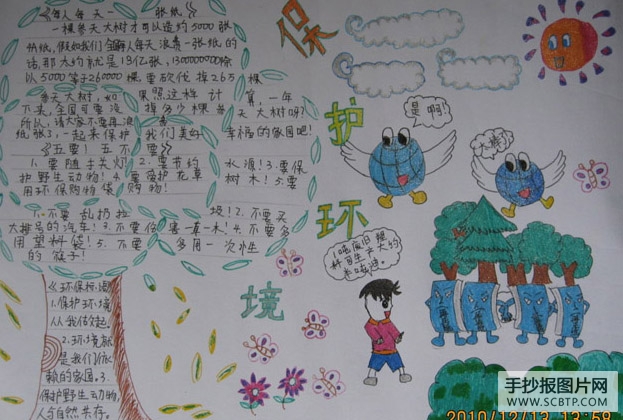 保护环境
每人每天一张纸
一棵参天大树才可以造约5000张
纸,假如我们全人每天浪费一张纸的
话,那大约就是13亿张,1300000000除
以5000等于260000棵,要砍伐掉265棵
参天大树,如果照这样计算,一年
下来,全国可要浪掉多少棵参天大树呀?
所以,请大家不要再浪
纸张了,一起来保护我们美好幸福的家园吧!
五要!五不要
1.要随手关灯!2.要节约水源!3.要保
护野生动物!4.要爱护花草树木!5.要
用环保购物袋购物!
1.不要乱扔垃圾!2.不要买
大排量的汽车!3.不要伤害一草一木!4.不要多
用塑料袋!5.不要多用一次性
的筷子!
环保标语
1.保护环境
从我做起.
2.环境就
是我们依
赖的家园.3.
保护野生动物,
人与自然共存.
是啊!
1吨废旧塑
料可生产大约
手抄报图片网
WWW.SCBTP.COM
2010/12/13 13:59